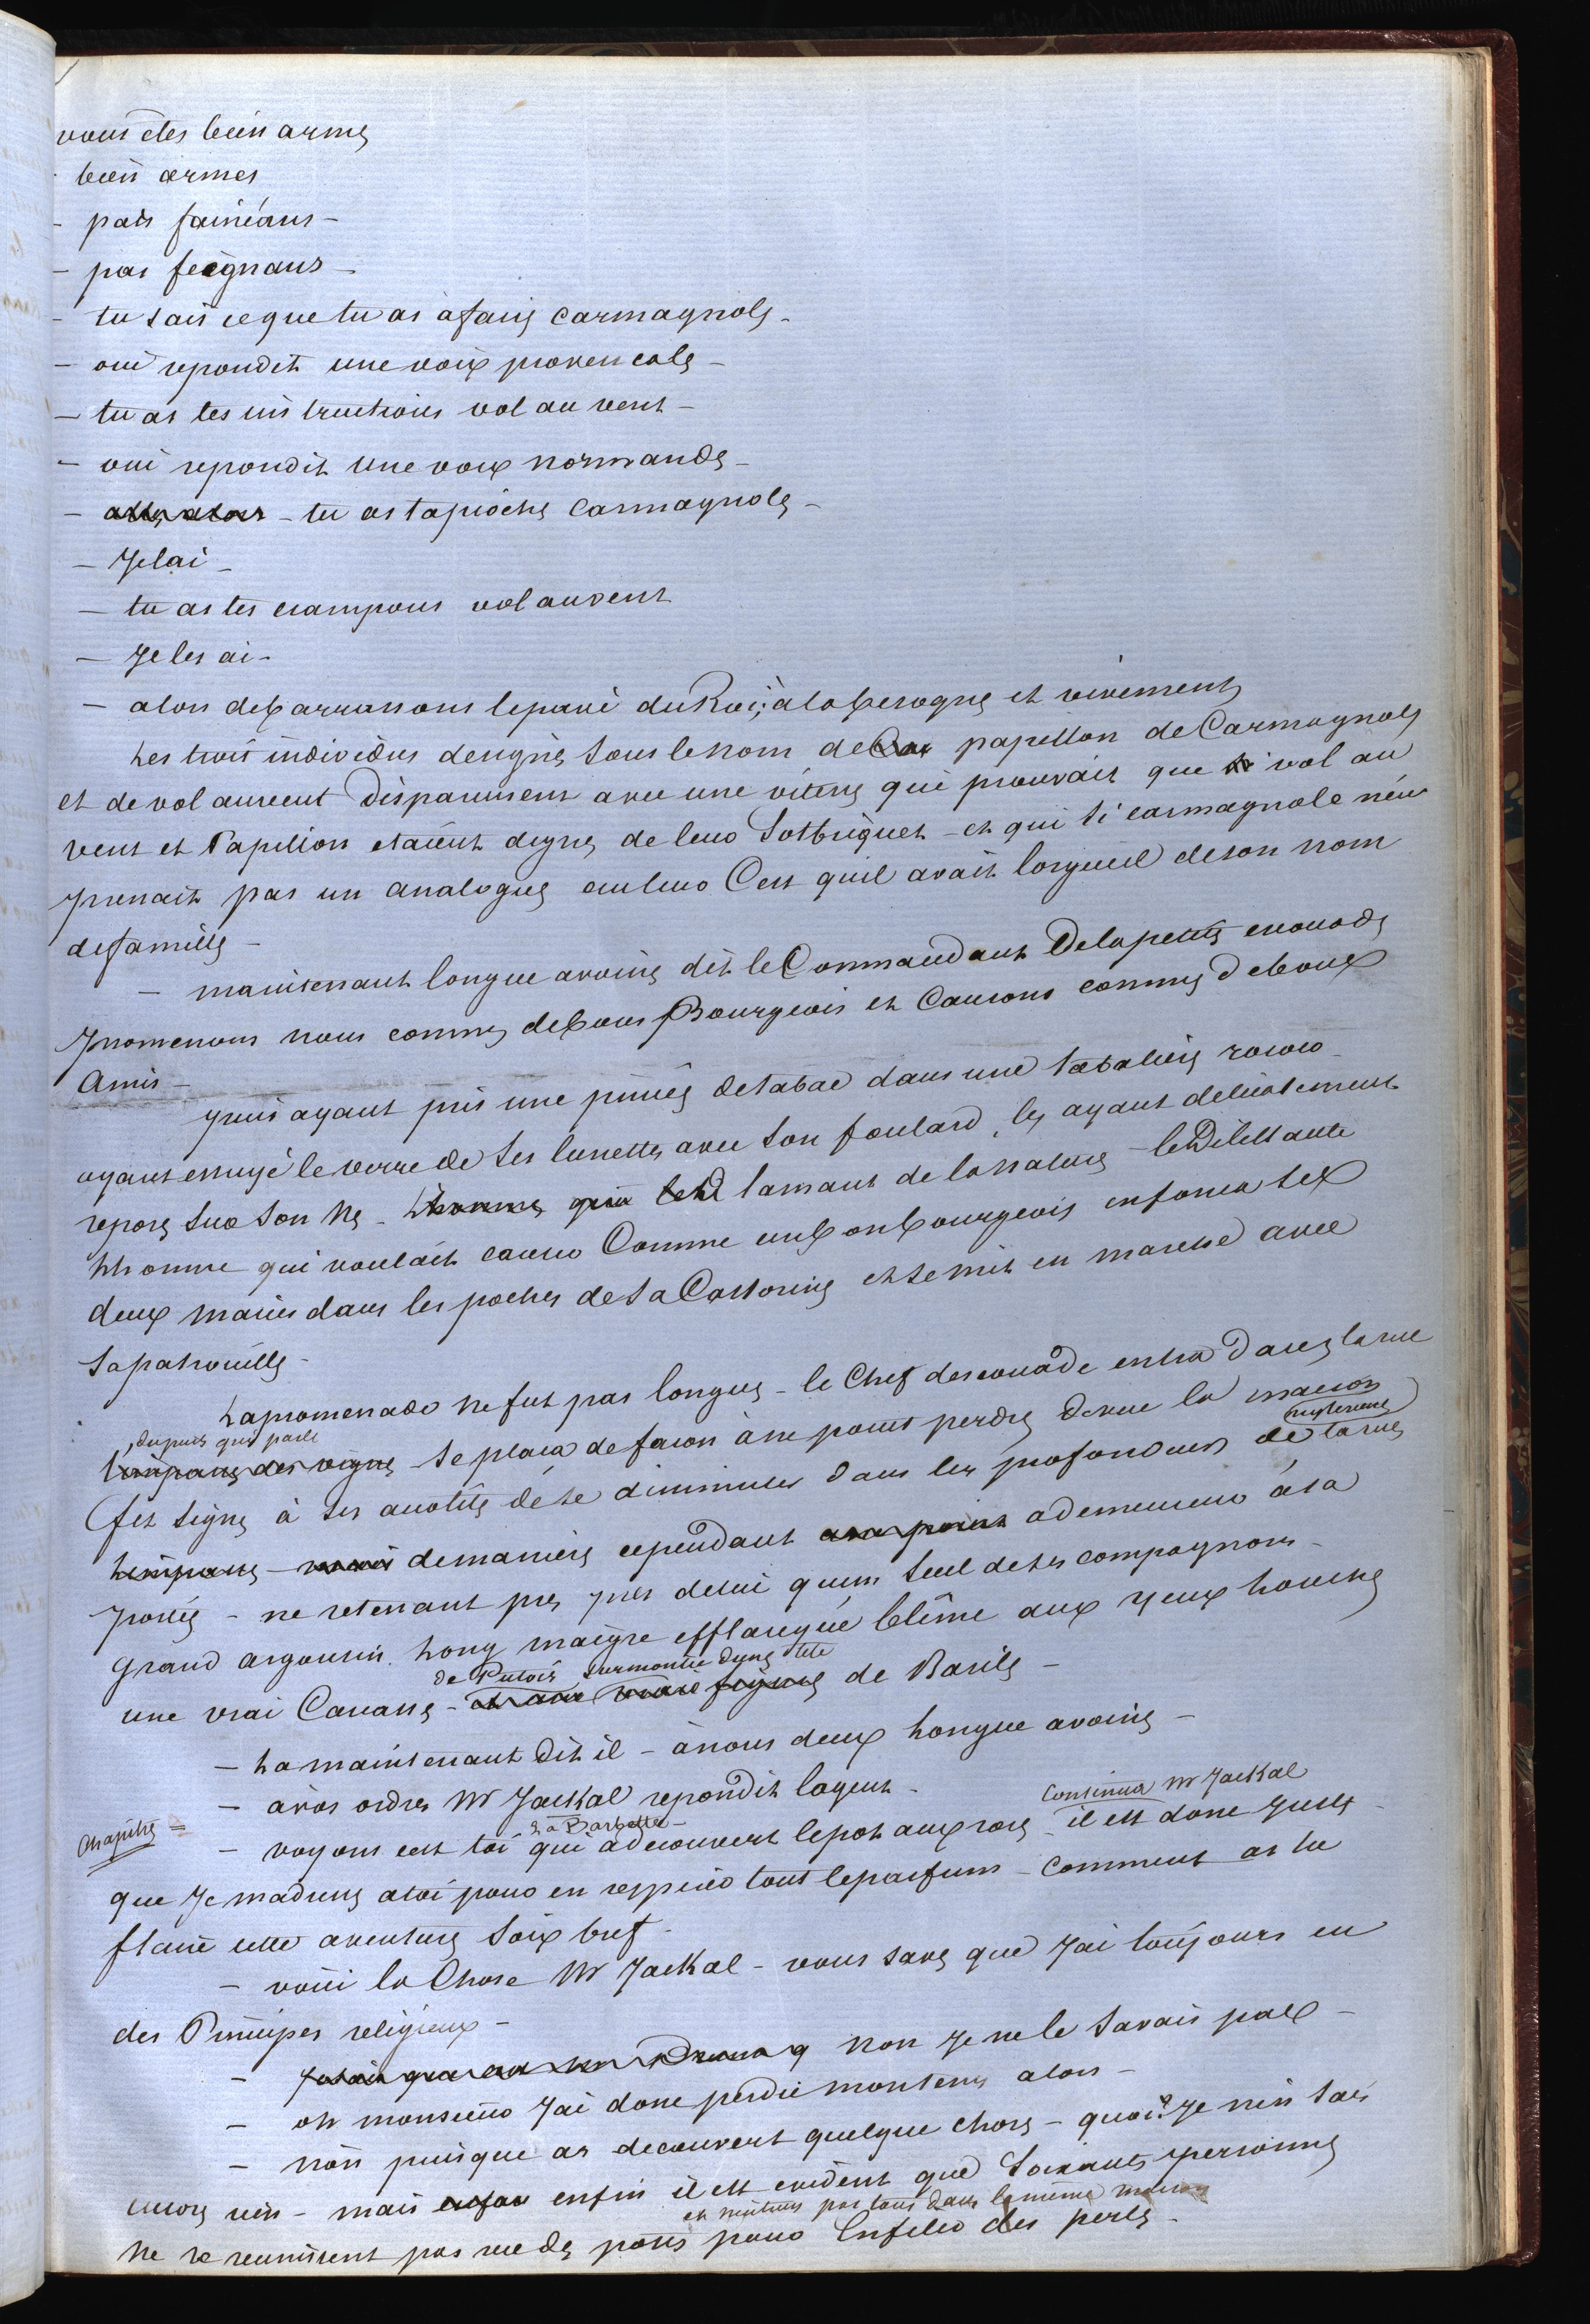 vous etes bien armés
- bien armes
- pas faineans -
- pas feignans -
- tu sais ce que tu as à faire Carmagnole -
- oui repondit une voix provencale -
- tu as tes instructions vol au vent -
- oui repondit une voix normande -
- tu as ta pioche Carmagnole -
- Je lai -
- tu as tes crampons vol au vent
- Je les ai -
- alors debarrassons le pavé du Roi, à la besogne et vivement
Les trois individus designés sous le nom de papillon de Carmagnole
et de vol au vent disparurent avec une vitesse qui prouvait que vol au
vent et Papillon etaient dignes de leur Sotbriquet - et qui si carmagnole nen
prenait pas un analogue au leur Cest quil avait lorgueil de son nom
de famille -
- maintenant longue avoine dit le Commandant De la petite escouade
promenons nous comme de bons Bourgeois et Causons comme de bons
Amis -
puis ayant pris une prise de tabac dans une tabatiere rococo
ayant essuyé le verre de ses lunettes avec son foulard, les ayant delicatement
reposé sur son nez - lhomme qui lamant de la nature - le Dilettante
lhomme qui voulait causer Comme un bon bourgeois enfonca ses
deux mains dans les poches de sa Castorine et se mit en marche avec
sa patrouille -
La promenade ne fut pas longue - le Chef descouade entra dans la rue
depuis peu parlé
limpasse des vignes se placa de facon à ne point perdre de vue la maison
mysterieuse
fit signe à ses acolites de se dissimuler dans les profondeurs de la rue
limpasse - mais de maniere cependant à demeurer à sa
portée - ne retenant pres de lui quun seul de ses compagnons -
Grand argousin. Long maigre efflanqué blême aux yeux louches
de Putois surmontée dune tete
une vrai Carcasse - de Basile -
- La maintenant dit il - à nous deux longue avoine -
- à vos ordres Mr Jackal repondit lagent -
Continua Mr Jackal
Chapitre =
La Barbette -
- voyons cest toi qui a decouvert le pot aux roses il est donc juste
que Je madresse à toi pour en respirer tout le parfum - Comment as tu
flairé cette aventure Sois bref -
- voici la Chose Mr Jackal - vous savez que Jai toujours eu
des Principes religieux -
- non Je ne le savais pas -
- oh monsieur Jai donc perdu mon tems alors -
- non puisque as decouvert quelque chose - quoi? Je nen sais
encore rien - mais enfin il est evident que soixante personnes
et n'entrent pas tous dans la même maison
ne se reunissent pas rue des postes pour Enfiler des perles -